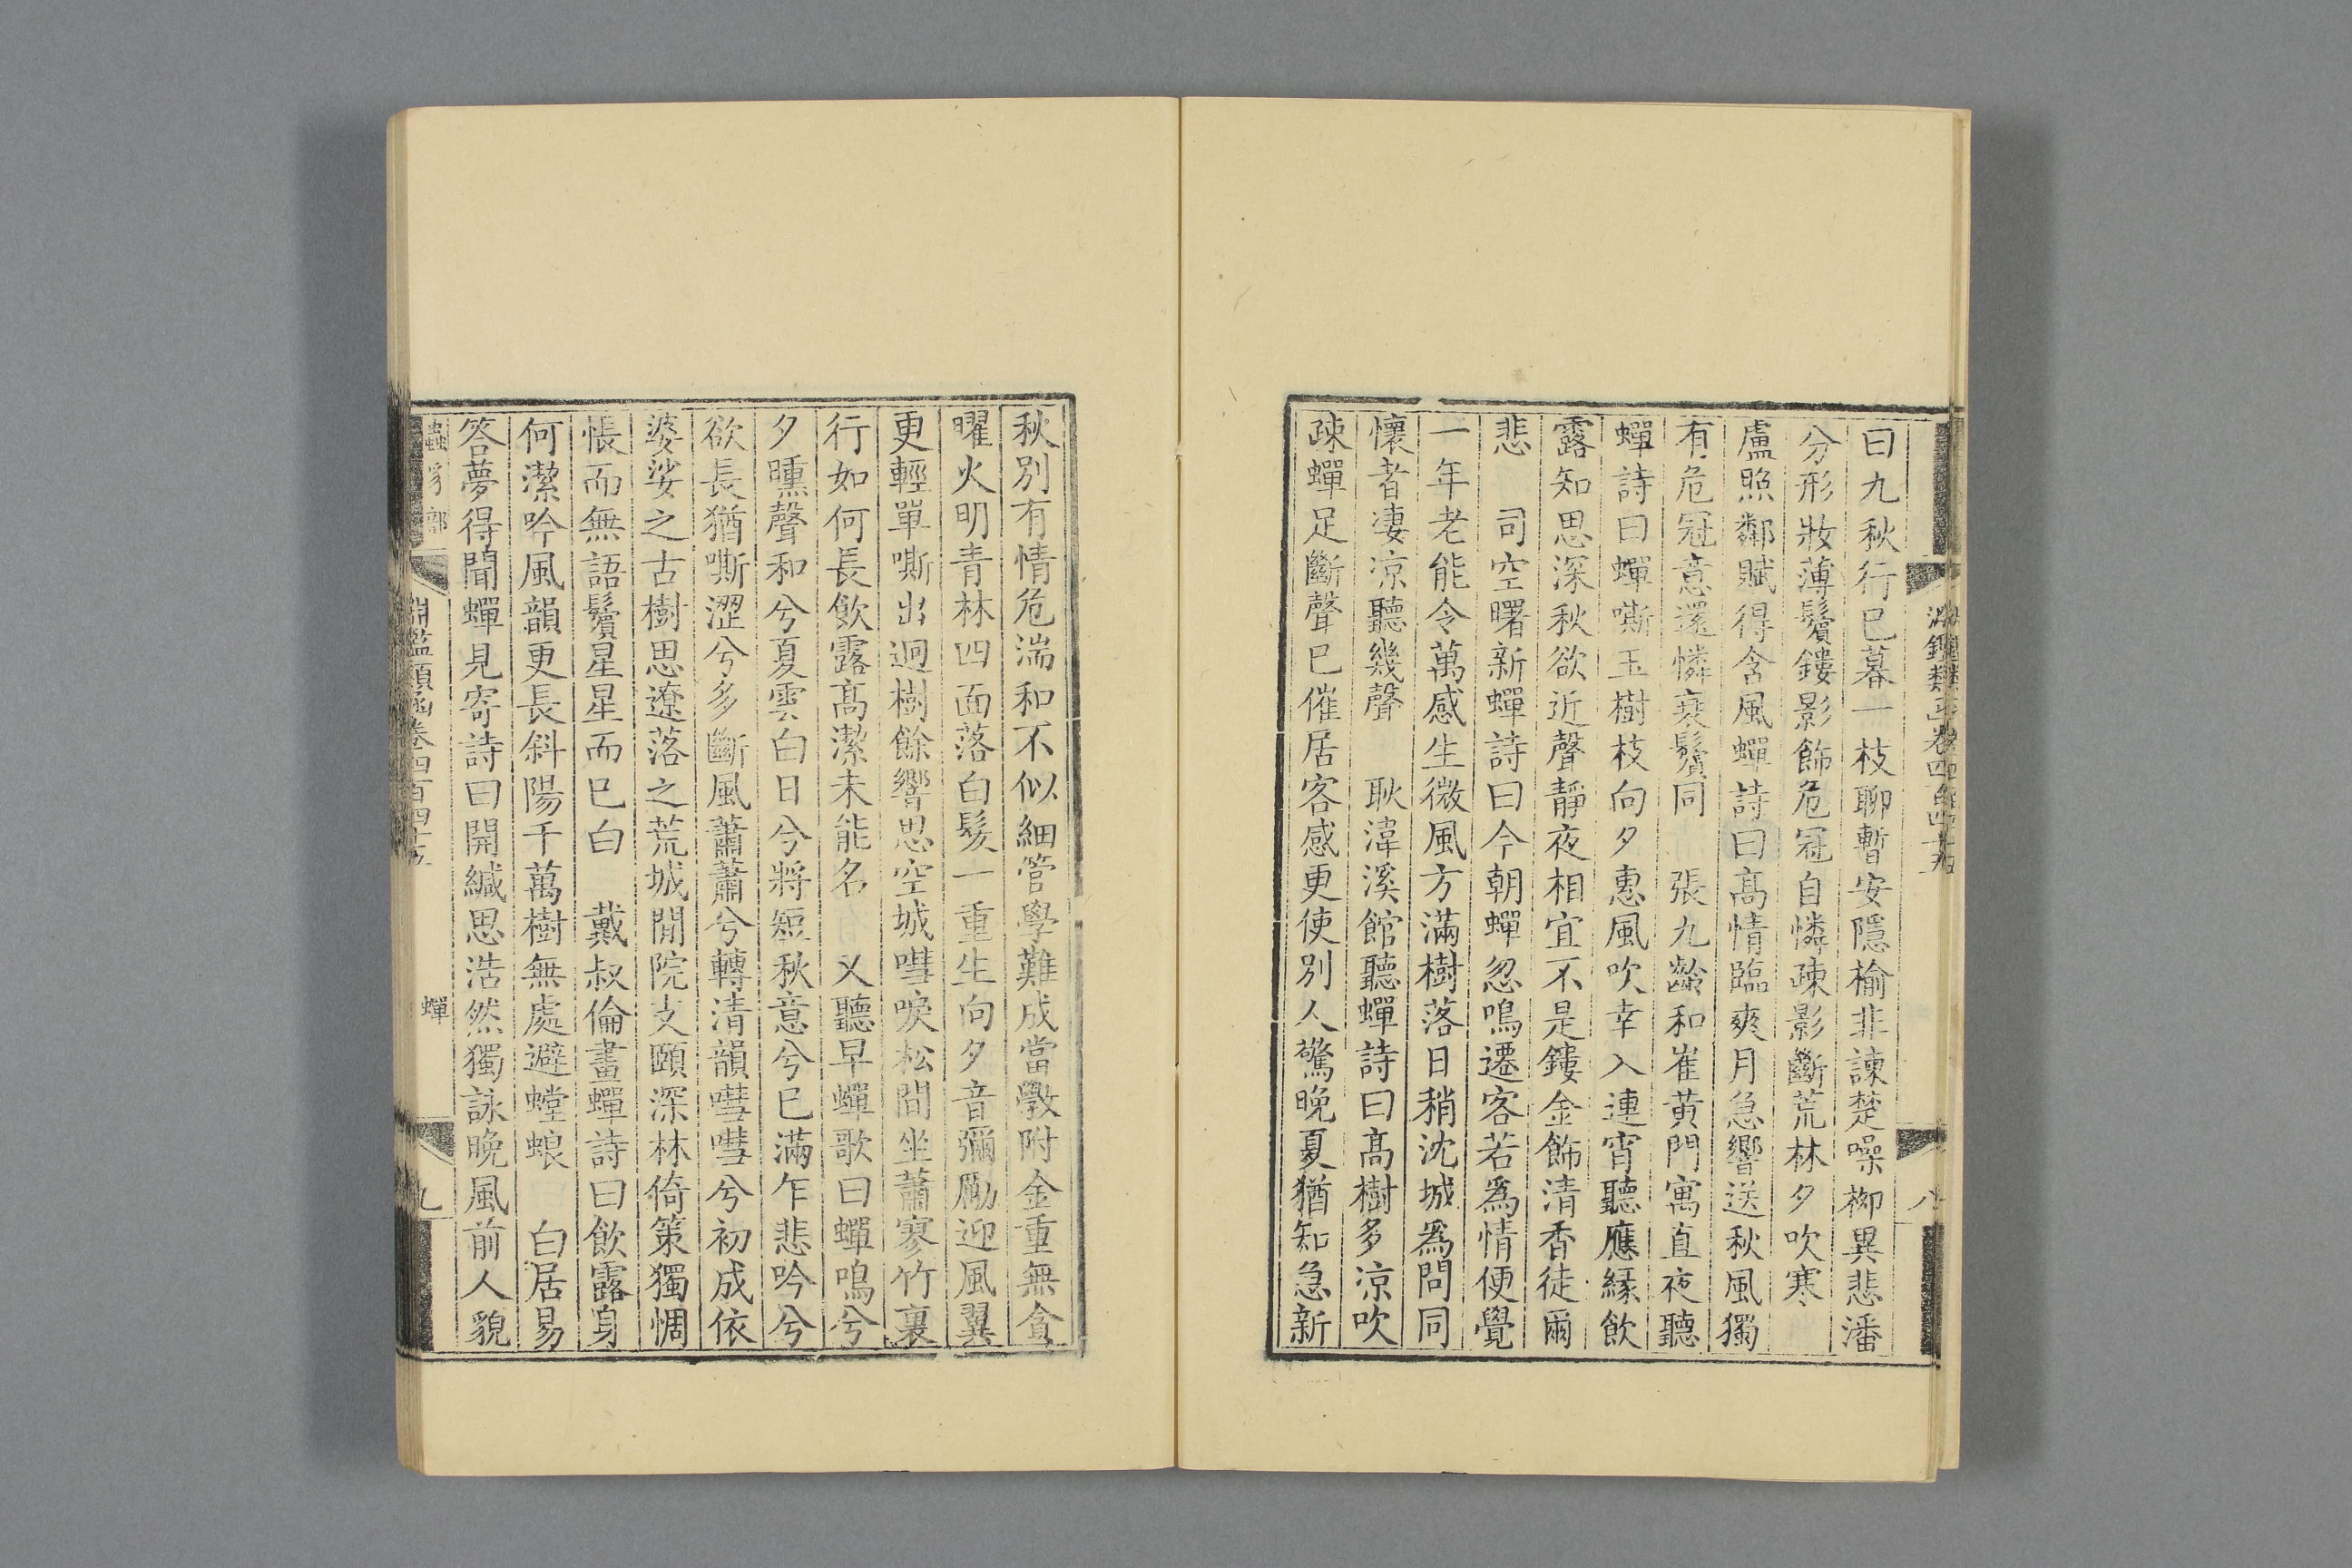 曰九秋行已暮一枝聊暫安隱榆非諫楚噪柳異悲潘
分形妝薄鬢鏤影飾危冠自憐疎影斷荒林夕吹寒
盧照鄰賦得含風蟬詩曰高情臨爽月急響送秋風獨
有危冠意還憐衰鬢同　張九齡和崔黃門寓直夜聽
蟬詩曰蟬嘶玉樹枝向夕惠風吹幸入連宵聽應緣飲
露知思深秋欲近聲靜夜相宜不是鏤金飾清香徒爾
悲　司空曙新蟬詩曰今朝蟬忽鳴遷客若爲情便覺
一年老能令萬感生微風方滿樹落日稍沈城爲問同
懷者淒涼聽幾聲　耿湋溪館聽蟬詩曰高樹多涼吹
疎蟬足斷聲已催居客感更使別人驚晚夏猶知急新
秋別有情危湍和不似細管學難成當斅附金重無貪
曜火明青林四面落白髮一重生向夕音彌勵迎風翼
更輕單嘶出迥樹餘響思空城嘒唳松間坐蕭寥竹裏
行如何長飲露高潔未能名　又聽早蟬歌曰蟬鳴兮
夕曛聲和兮夏雲白日兮將短秋意兮已滿乍悲吟兮
欲長猶嘶澀兮多斷風蕭蕭兮轉清韻嘒嘒兮初成依
婆娑之古樹思遼落之荒城閒院支頤深林倚策獨惆
悵而無語鬢星星而已白　戴叔倫畫蟬詩曰飲露身
何潔吟風韻更長斜陽千萬樹無處避螳蜋　白居易
答夢得聞蟬見寄詩曰開緘思浩然獨詠晚風前人貌
蟲豸部　淵鑑類函卷四百四十五　蟬　九